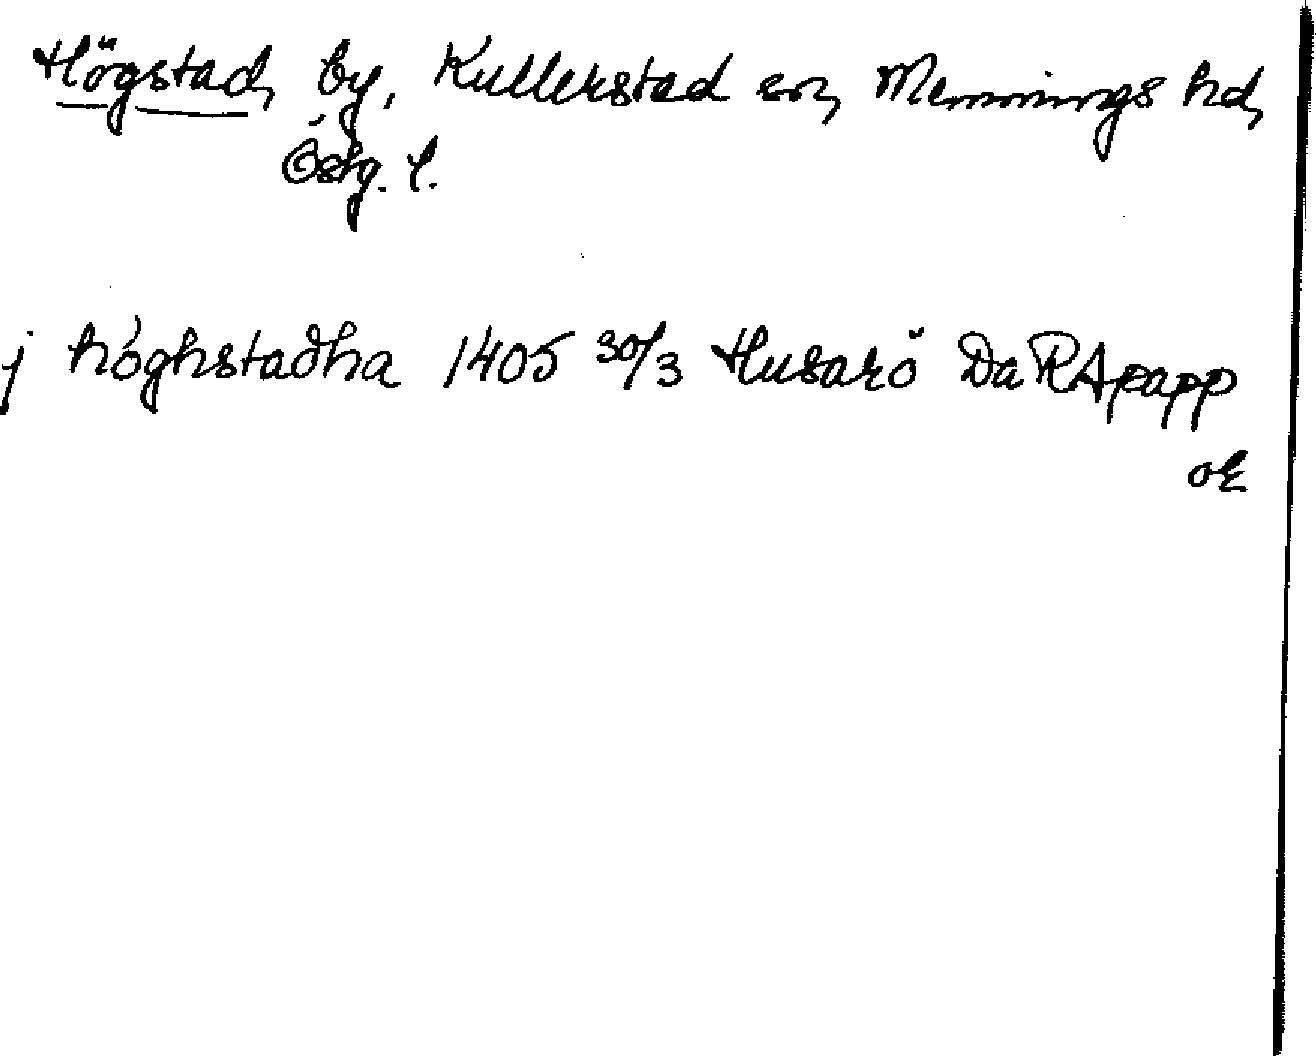 Högstad, by, Kullerstad sn, Memmings hd,
Östg. l.
j höghstadha 1405 30/3 Husarö Da RApapp
oE